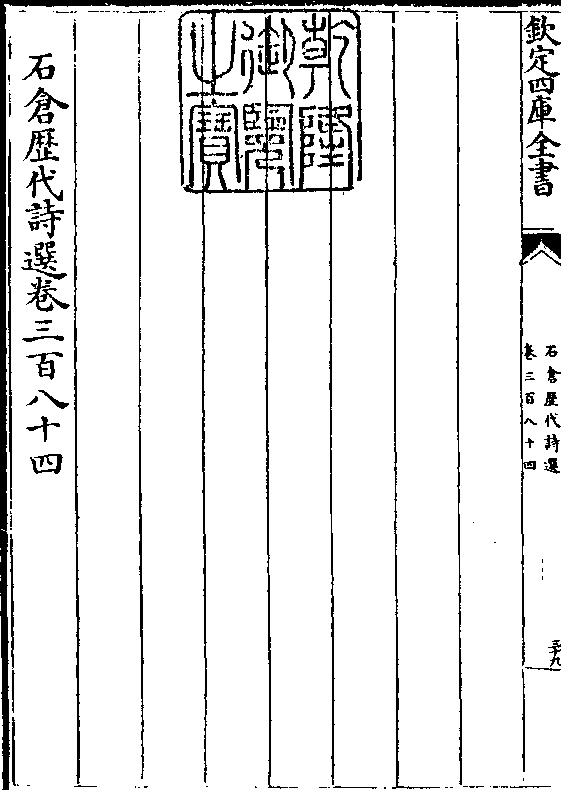 欽定四庫全書
石倉歴代詩選
卷三百八十四
乾隆
御覽
之寶
石倉歴代詩選卷三百八十四